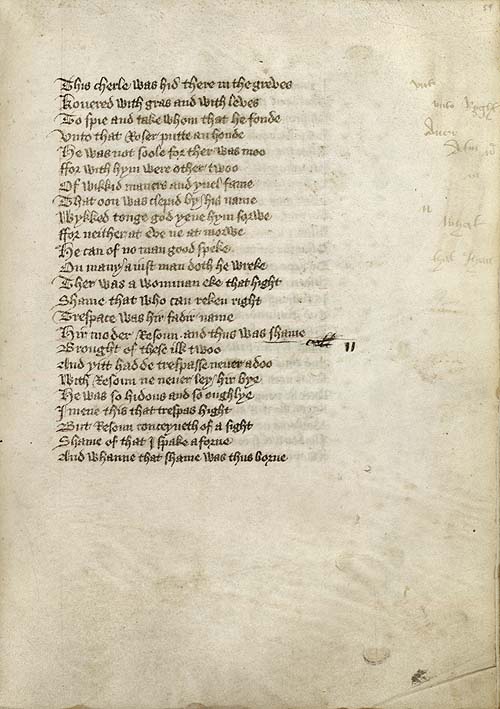 This cherle was hid there in the greves
Kouered with gras and with leves
To spie and take whom that he fonde
Vnto that Roser putte an honde
He was not soole for ther was moo
ffor with hym were other twoo
Of wikkid maners and yuel fame
That oon was clepid by his name
Wykked tonge god yeue hym sorwe
ffor neither at eve ne at morwe
He can of no man good speke
On many a iust man doth he wreke
Ther was a womman eke that hight
Shame that who can reken right
Trespace was hir fadir name
Hir moder Resoun and thus was shame
Brought of these ilk twoo
And yitt hadde trespasse never adoo
With Resoun ne never ley hir bye
He was so hidous and so oughlye
I mene this that trespas hight
But Resoun conceyueth of a sight
Shame of that I spake aforne
And whanne that shame was thus borne
59
vnto
vnto